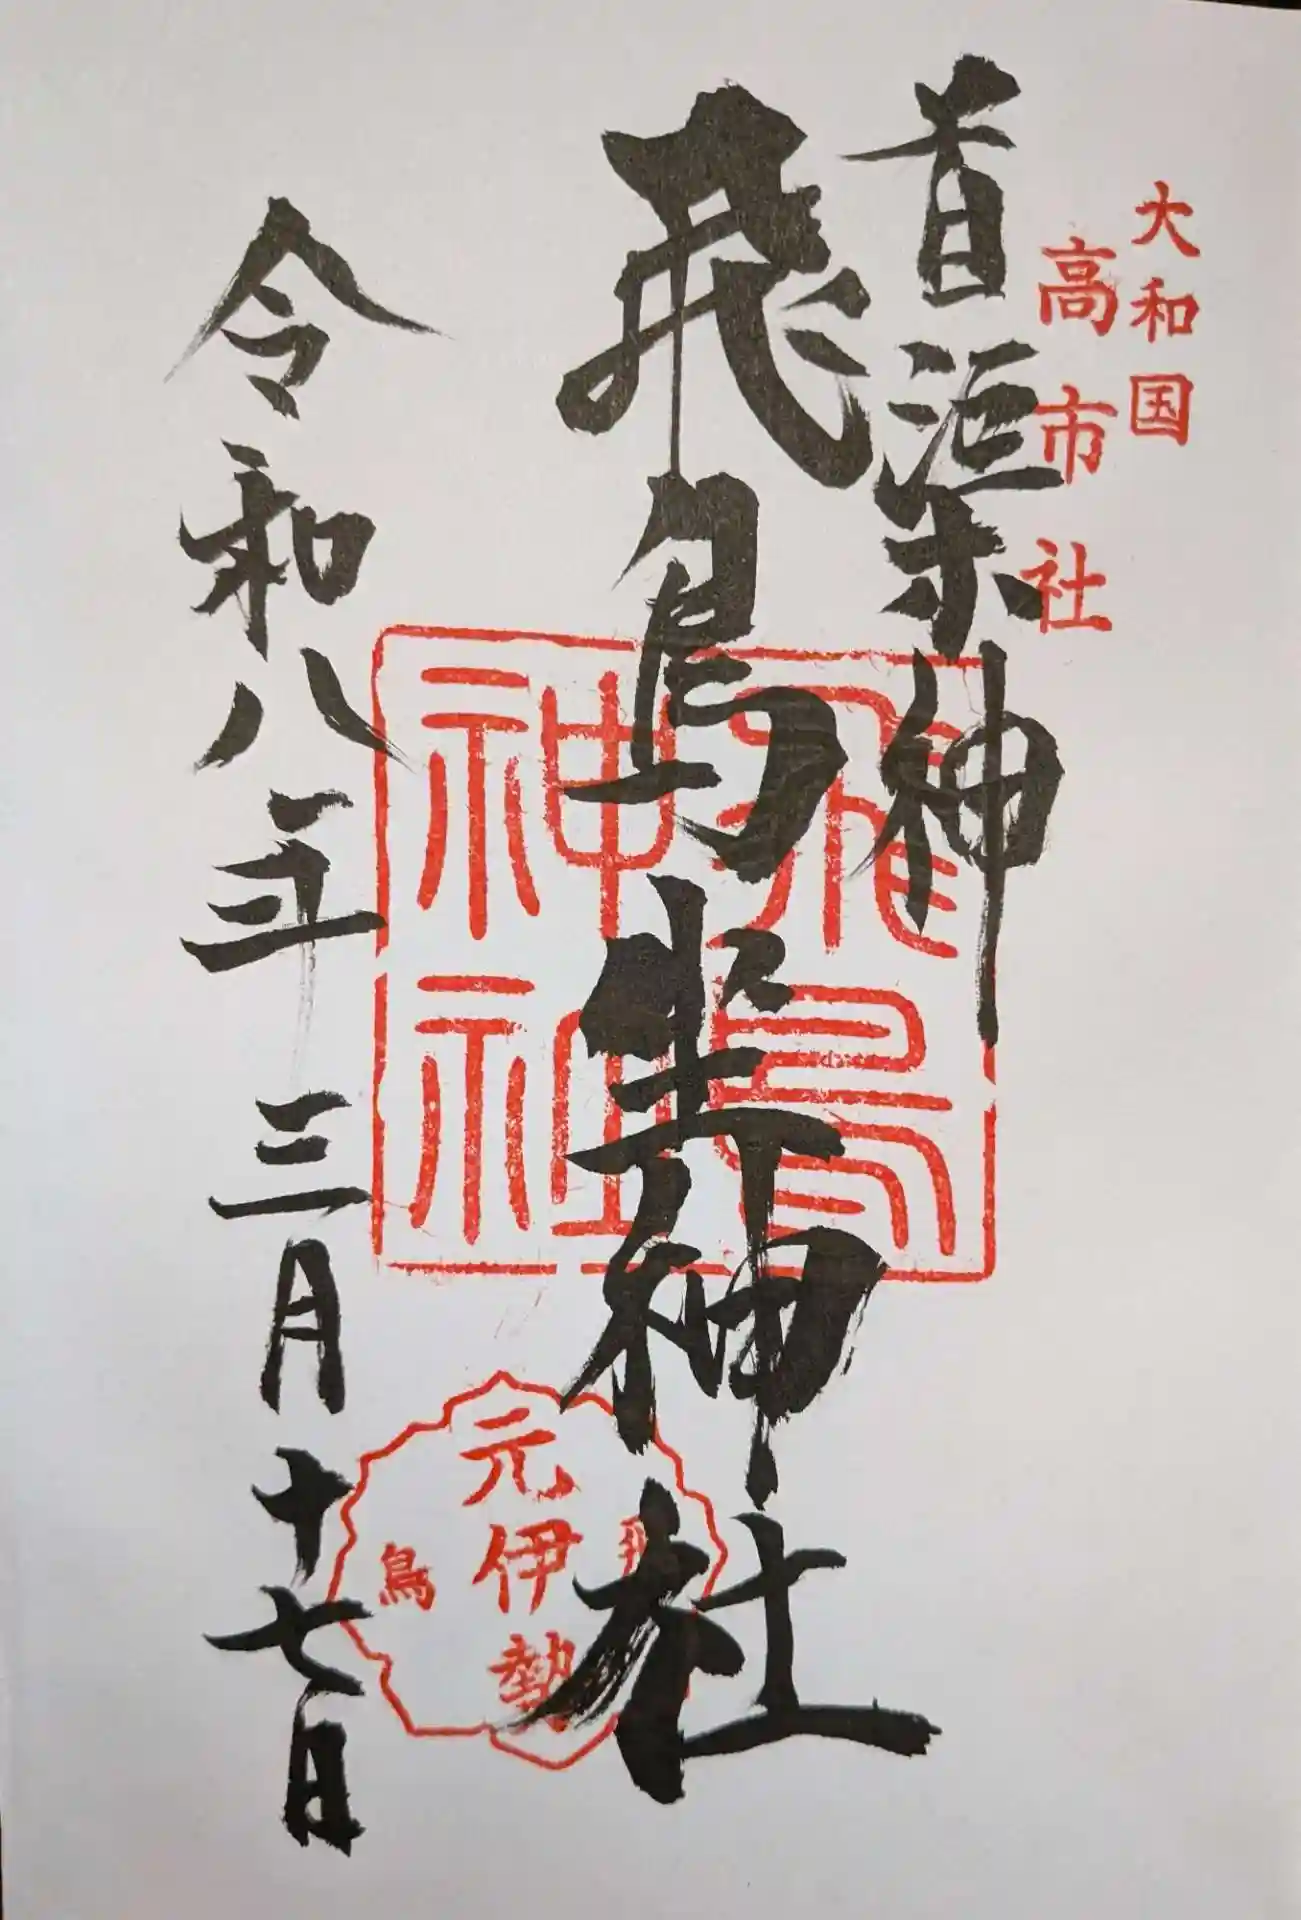 大和国
高市社
首渠神
飛鳥坐神社
飛鳥神社
元伊勢
飛鳥
令和八年三月十七日